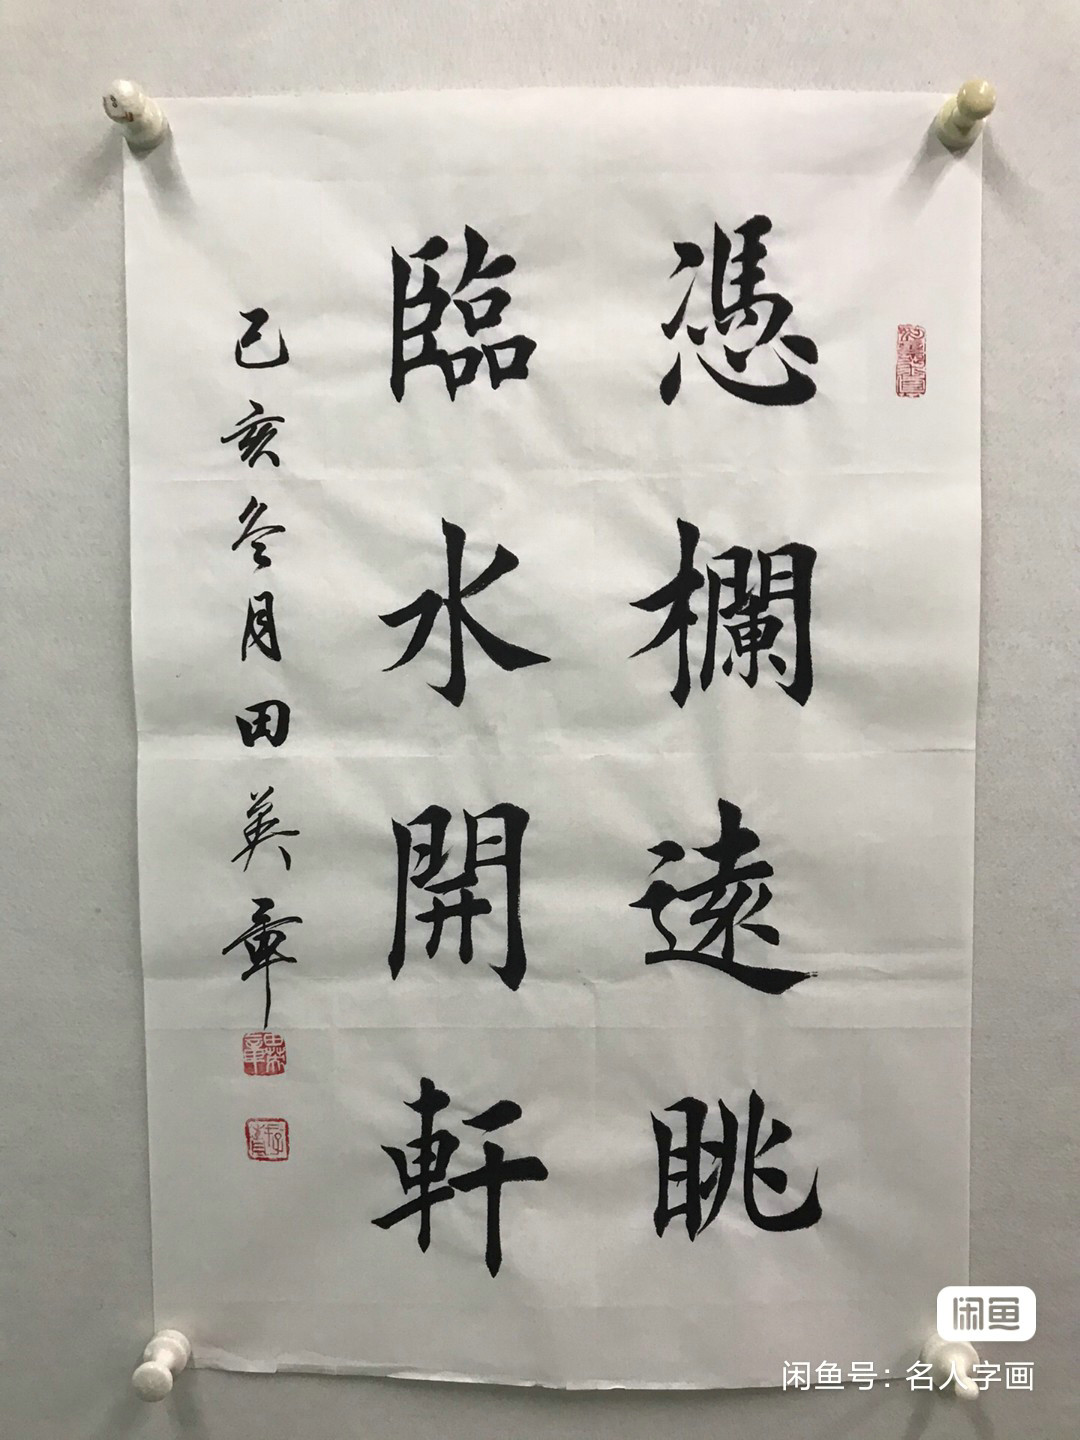 憑欄遠眺
臨水開軒
己亥冬月田英章
闲鱼
闲鱼号：名人字画